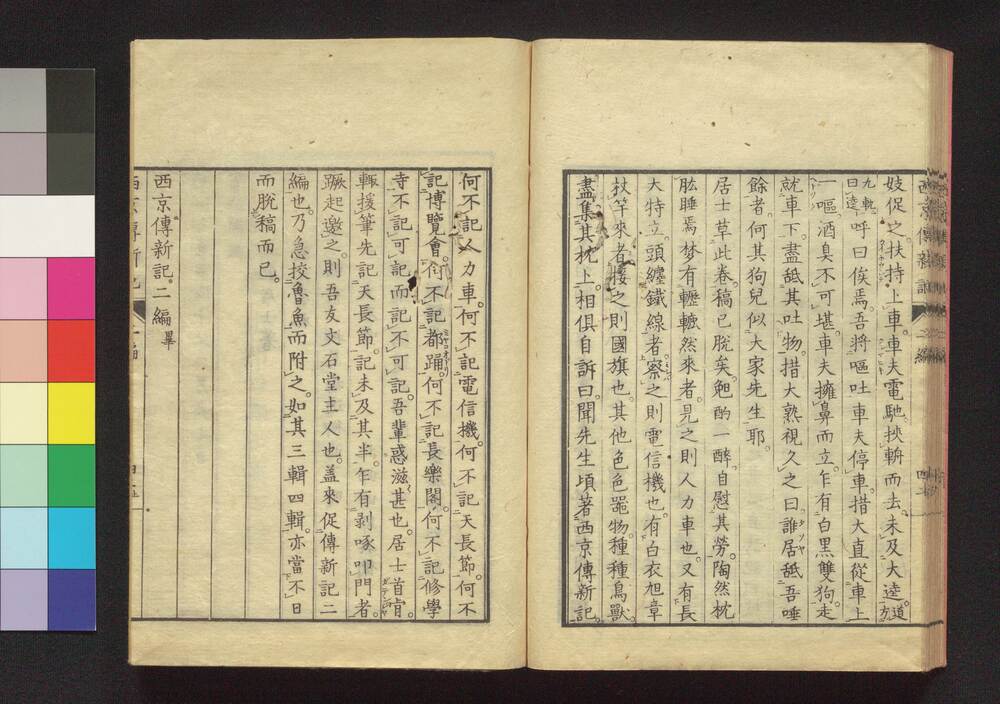 妓促之扶持上車。車夫電馳。挾輈而去。未及大逵。道方
九軌
曰逵呼曰俟焉。吾將嘔吐車夫停車。措大直從車上
一嘔。酒臭不可堪。車夫擁鼻而立。乍有白黑雙狗。走
就車下。盡舐其吐物。措大熟視久之曰。誰居舐吾唾
餘者。何其狗兒似大家先生耶。
居士草此卷。稿已脫矣。勉酌一醉。自慰其勞。陶然枕
肱睡焉。梦有轣轆然來者。見之則人力車也。又有長
大特立。頭纏鐵線者。察之則電信機也。有白衣旭章
杖竿來者。接之則國旗也。其他色色器物。種種鳥獸。
盡集其枕上。相俱自訴曰。聞先生頃著西京傳新記。
何不記人力車。何不記電信機。何不記天長節。何不
記博覽會。何不記都踊。何不記長樂閣。何不記修學
寺。不記可記而記不可記。吾輩惑滋甚也。居士首肯。
輙援筆先記天長節。記未及其半。乍有剥啄叩門者。
蹶起邀之。則吾友文石堂主人也。盖來促傳新記二
編也。乃急挍魯魚而附之。如其三輯四輯。亦當不日
而脫稿而已。
西京傳新記二編畢